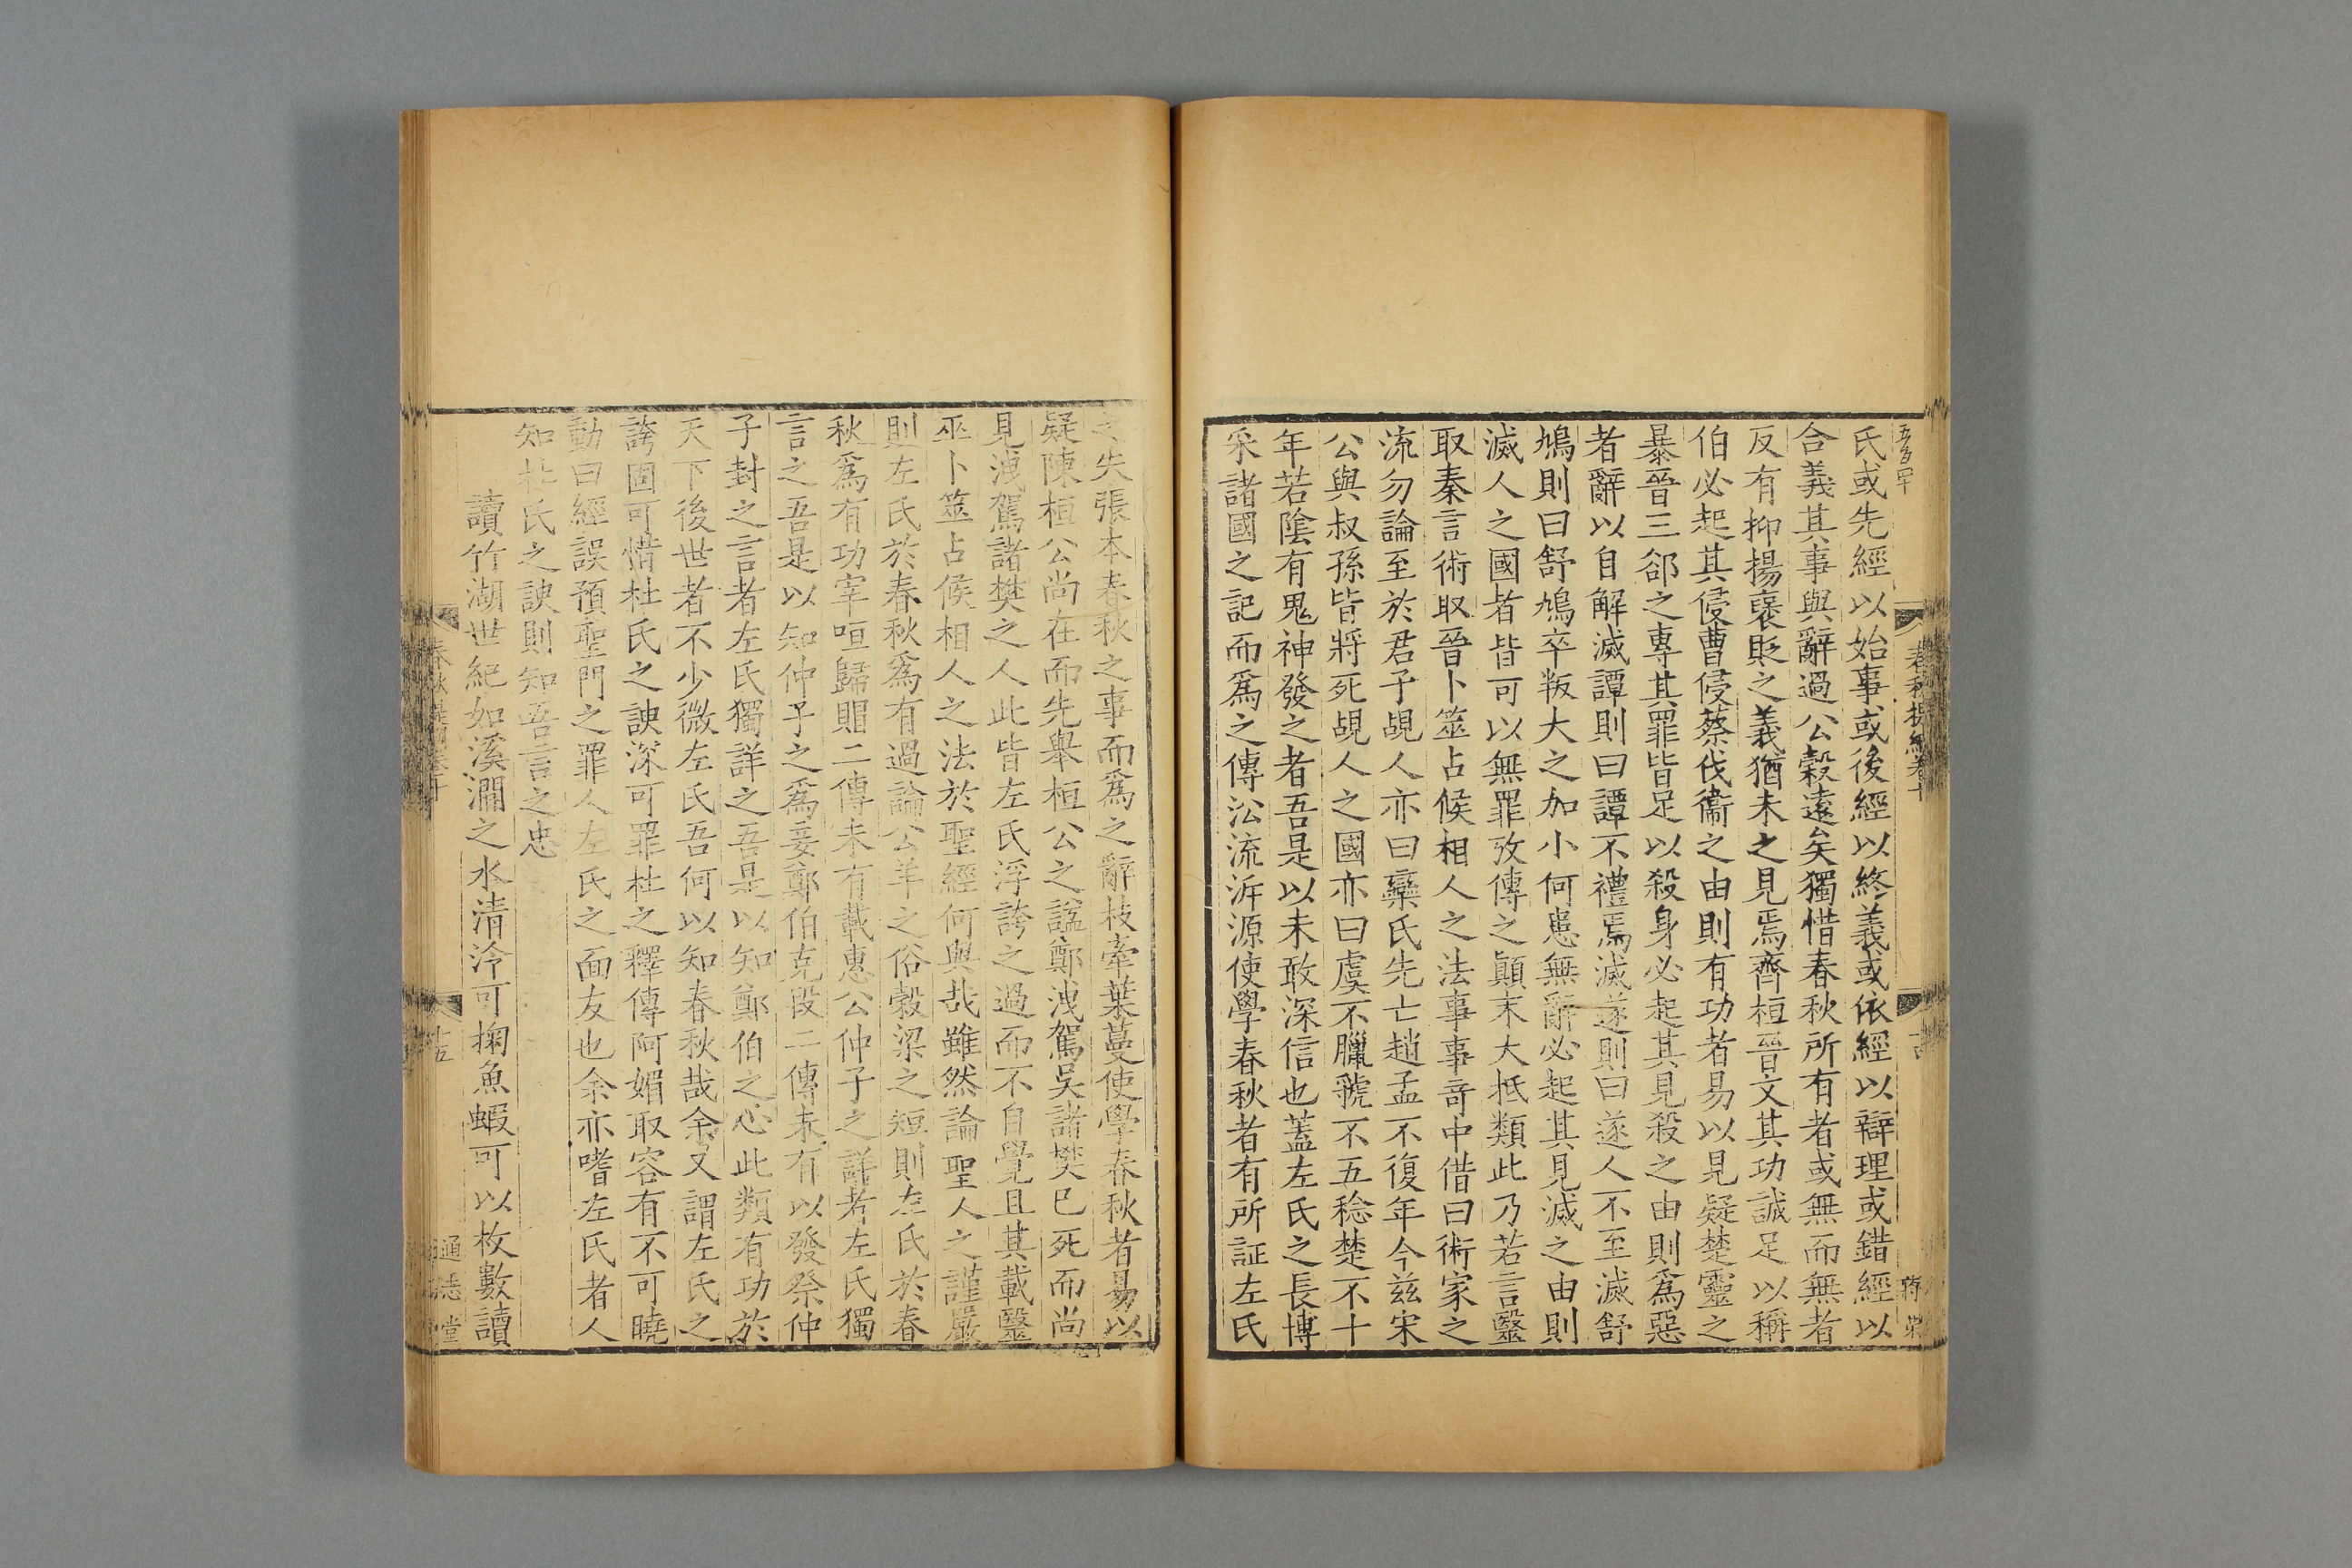 氏或先經以始事或後經以終義或依經以辯理或錯經以
合義其事與辭過公穀遠矣獨惜春秋所有者或無而無者
反有抑揚襃貶之義猶未之見焉齊桓晉文其功誠足以稱
伯必起其侵曹侵蔡伐衞之由則有功者易以見疑楚靈之
暴晉三郤之專其罪皆足以殺身必起其見殺之由則爲惡
者辭以自解滅譚則曰譚不禮焉滅遂則曰遂人不至滅舒
鳩則曰舒鳩卒叛大之加小何患無辭必起其見滅之由則
滅人之國者皆可以無罪攷傳之顚末大抵類此乃若言毉
取秦言術取晉卜筮占候相人之法事事奇中借曰術家之
流勿論至於君子覘人亦曰欒氏先亡趙孟不復年今兹宋
公與叔孫皆將死覘人之國亦曰虞不臘虢不五稔楚不十
年若隂有鬼神發之者吾是以未敢深信也蓋左氏之長博
采諸國之記而爲之傳㳂流泝源使學春秋者有所証左氏
之失張本春秋之事而爲之辭枝牽葉蔓使學春秋者易以
疑陳桓公尚在而先舉桓公之諡鄭洩駕吳諸樊已死而尚
見洩駕諸樊之人此皆左氏浮誇之過而不自覺且其載毉
巫卜筮占候相人之法於聖經何與哉雖然論聖人之謹嚴
則左氏於春秋爲有過論公羊之俗穀梁之短則左氏於春
秋爲有功宰咺歸賵二傳未有載惠公仲子之詳者左氏獨
言之吾是以知仲子之爲妾鄭伯克段二傳未有以發祭仲
子封之言者左氏獨詳之吾是以知鄭伯之心此類有功於
天下後世者不少微左氏吾何以知春秋哉余又謂左氏之
誇固可惜杜氏之諛深可罪杜之釋傳阿媚取容有不可曉
動曰經誤預聖門之罪人左氏之面友也余亦嗜左氏者人
知杜氏之諛則知吾言之忠
讀竹湖世紀如溪澗之水清泠可掬魚蝦可以枚數讀
通志堂